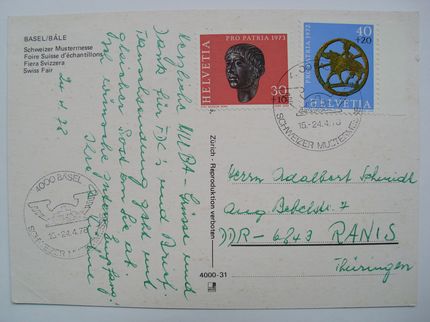 BASEL/BÂLE
Schweizer Mustermesse
Foire Suisse d'échantillons
Fiera Svizzera
Swiss Fair
20.4.78
Herzliche MUBA-Grüsse und
Dank für FDC's und Brief.
Tauschsendung geht mit
gleicher Post an Sie ab.
Ich wünsche guten Empfang.
Ihr
4000 BASEL
15.-24.4.78
SCHWEIZER MUSTERMESSE
Zürich · Reproduktion verboten
4000-31
HELVETIA
PRO PATRIA 1973
30
+10
PRO PATRIA 1972
40
+20
HELVETIA
15.-24.4.78
SCHWEIZER MUSTERMESSE
Herrn Adalbert Schmidt
Aug. Bebelstr. 7
DDR-6843 RANIS
Thüringen